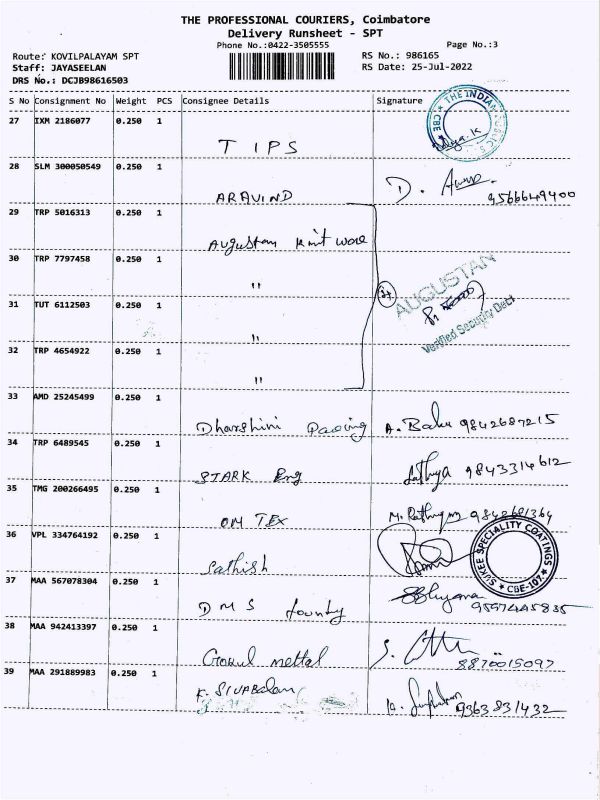 THE PROFESSIONAL COURIERS, Coimbatore
Delivery Runsheet - SPT
Phone No.:0422-3505555
Page No.:3
Route: KOVILPALAYAM SPT
RS No.: 986165
Staff: JAYASEELAN
RS Date: 25-Jul-2022
DRS No.: DCJB98616503
S No Consignment No Weight PCS Consignee Details Signature
27 IXM 2186077 0.250 1
TIPS
THE INDIAN PUBLIC S CBE
28 SLM 300050549 0.250 1
ARAVIND D. 9566649400
29 TRP 5016313 0.250 1
Augustan Knit Ware
30 TRP 7797458 0.250 1
"
AUGUSTAN
Verified Security Dept
31 TUT 6112503 0.250 1
"
32 TRP 4654922 0.250 1
"
33 AMD 25245499 0.250 1
Dharshini A. Babu 9842687215
34 TRP 6489545 0.250 1
STARK Eng Sathya 9843314612
35 TMG 200266495 0.250 1
OM TEX M. 9842681364
36 VPL 334764192 0.250 1
Sathish
SUREE SPECIALITY COATINGS CBE-107
37 MAA 567078304 0.250 1
DMS founty 9597445835
38 MAA 942413397 0.250 1
Gokul mettal S. 8870015097
39 MAA 291889983 0.250 1
K. SIVABALAN K. 9363831432